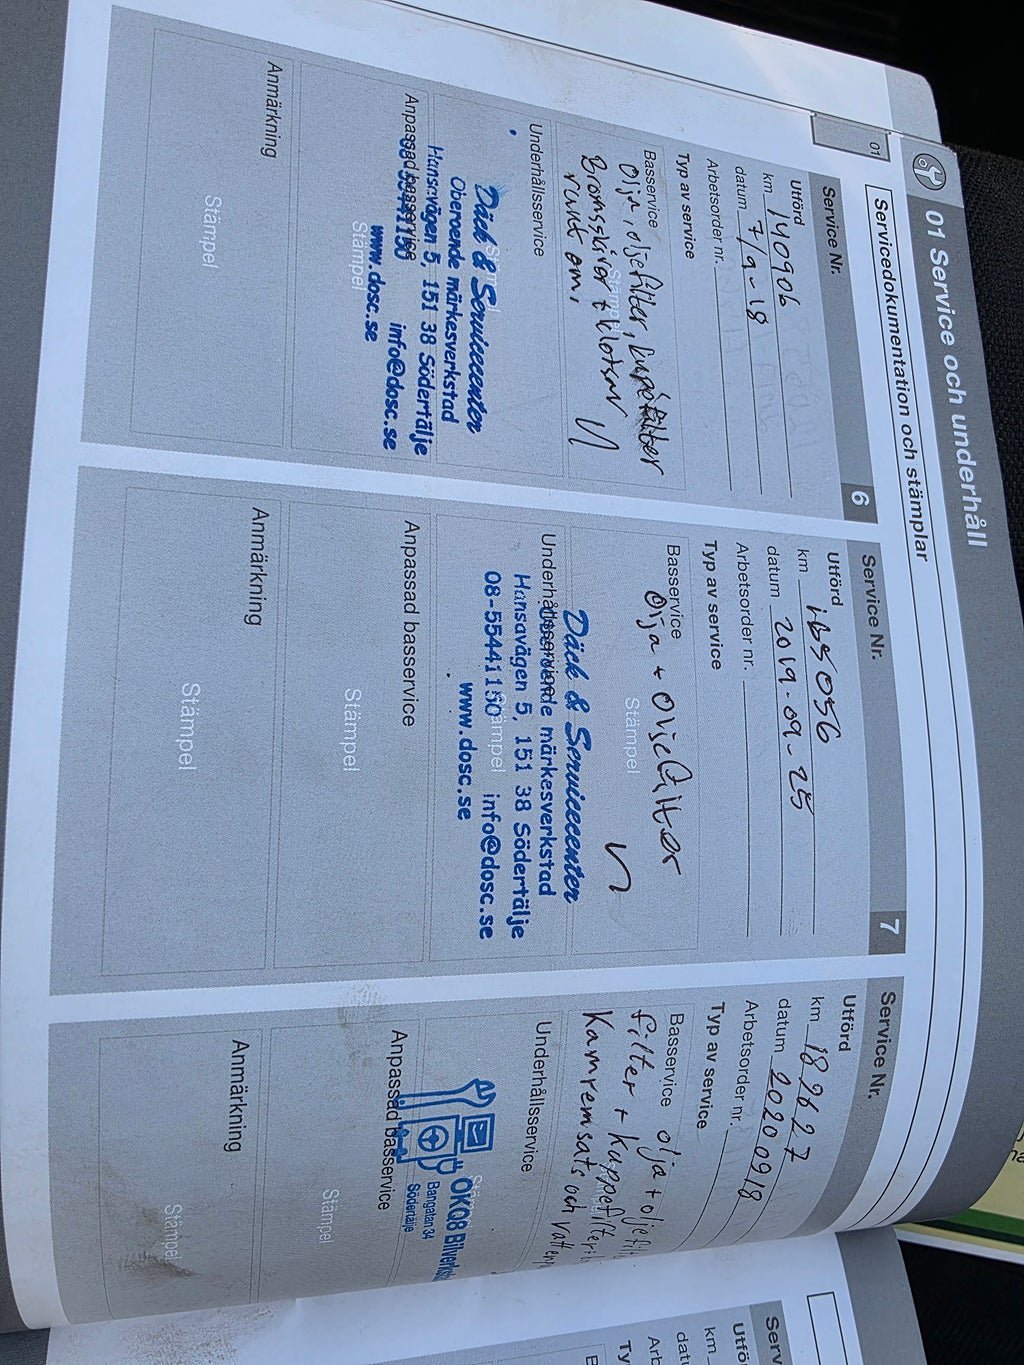 01 Service och underhåll
01
Servicedokumentation och stämplar
Service Nr.
6
Utförd
km 140906
datum 7/9-18
Arbetsorder nr.
Typ av service
Basservice
Olja, oljefilter, kupéfilter
Bromsskivor + klotsar
runt om.
Stämpel
Underhållsservice
Däck & Servicecenter
Oberoende märkesverkstad
Hansavägen 5, 151 38 Södertälje
08-55441150 info@dosc.se
www.dosc.se
Stämpel
Anpassad basservice
Stämpel
Anmärkning
Stämpel
Service Nr.
7
Utförd
km 165056
datum 2019-09-25
Arbetsorder nr.
Typ av service
Basservice
Olja + Oljefilter
Stämpel
Underhållsservice
Däck & Servicecenter
Oberoende märkesverkstad
Hansavägen 5, 151 38 Södertälje
08-55441150 info@dosc.se
www.dosc.se
Stämpel
Anpassad basservice
Stämpel
Anmärkning
Stämpel
Service Nr.
Utförd
km 182627
datum 20200918
Arbetsorder nr.
Typ av service
Basservice olja + oljefilt
filter + kuppefilter +
Kamremsats och vattenp
Underhållsservice
OKQ8 Bilverks
Bangatan 34
Södertälje
Anpassad basservice
Stämpel
Anmärkning
Stämpel
Serv
Utfö
km
dat
Arb
Ty